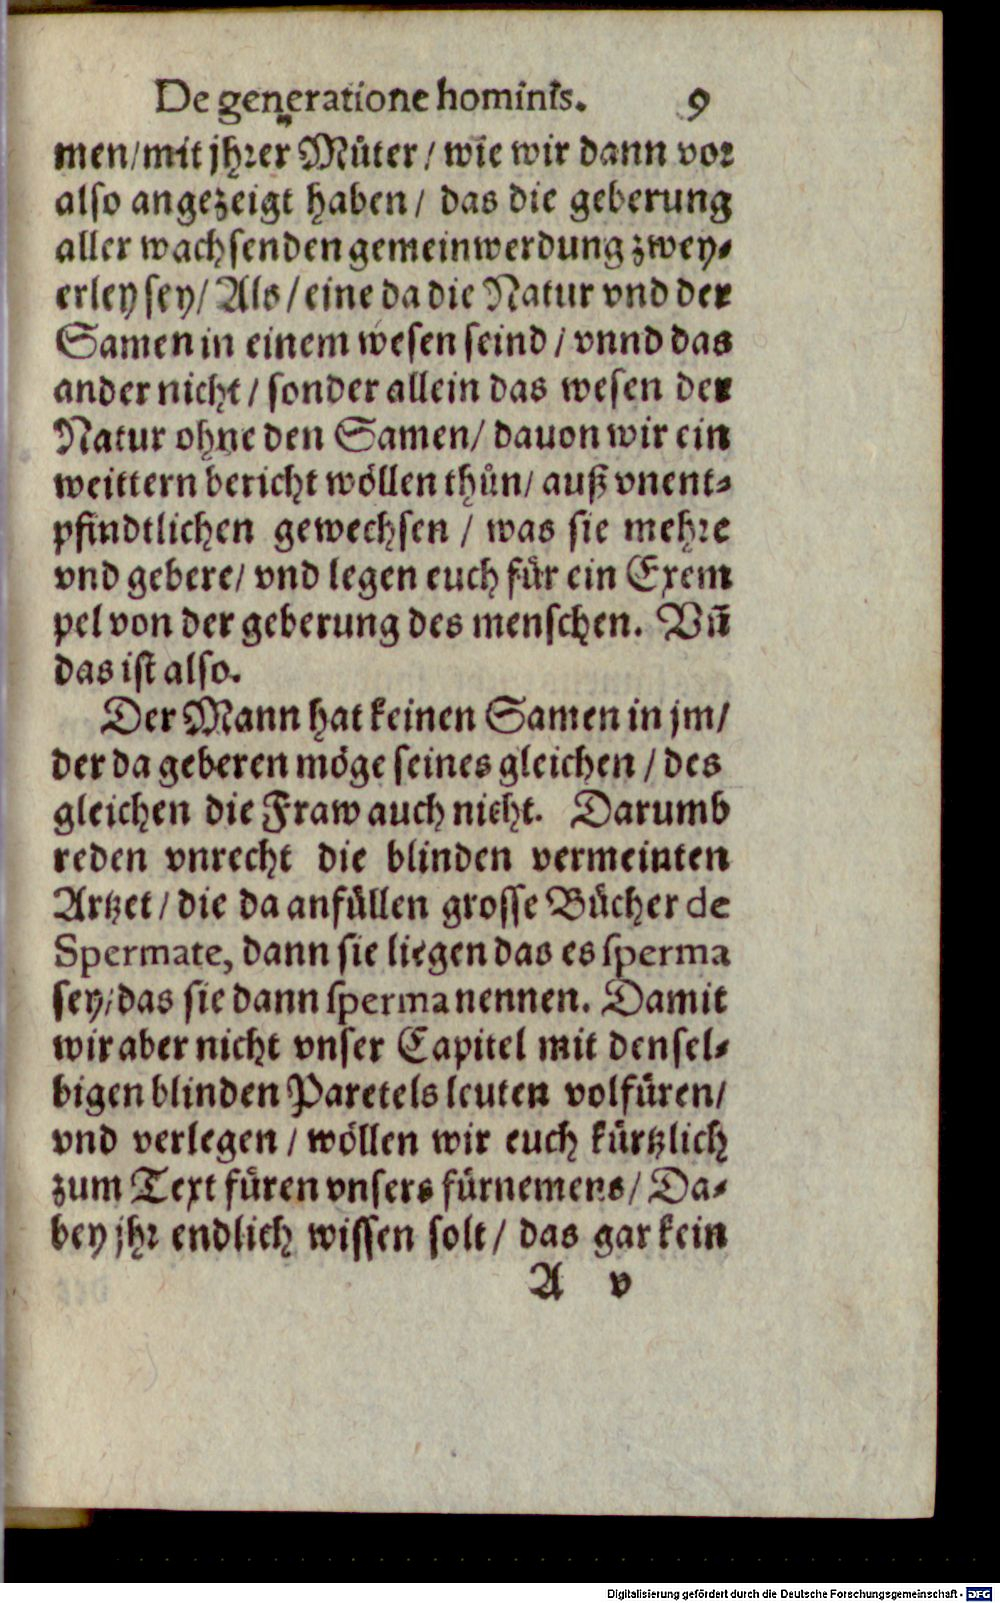 De generatione hominis. 9
men/mit jhrer Můter/ wie wir dann vor
also angezeigt haben/ das die geberung
aller wachsenden gemeinwerdung zwey-
erley sey/ Als/ eine da die Natur vnd der
Samen in einem wesen seind/ vnnd das
ander nicht/ sonder allein das wesen der
Natur ohne den Samen/ dauon wir ein
weittern bericht wöllen thůn/ auß vnent-
pfindtlichen gewechsen/ was sie mehre
vnd gebere/ vnd legen euch für ein Exem
pel von der geberung des menschen. Vñ
das ist also.
Der Mann hat keinen Samen in jm/
der da geberen möge seines gleichen/ des
gleichen die Fraw auch nicht. Darumb
reden vnrecht die blinden vermeinten
Artzet/ die da anfüllen grosse Bücher de
Spermate, dann sie liegen das es sperma
sey/das sie dann sperma nennen. Damit
wir aber nicht vnser Capitel mit densel-
bigen blinden Paretels leuten volfüren/
vnd verlegen/ wöllen wir euch kürtzlich
zum Text füren vnsers fürnemens/ Da-
bey jhr endlich wissen solt/ das gar kein
A v
Digitalisierung gefördert durch die Deutsche Forschungsgemeinschaft - DFG